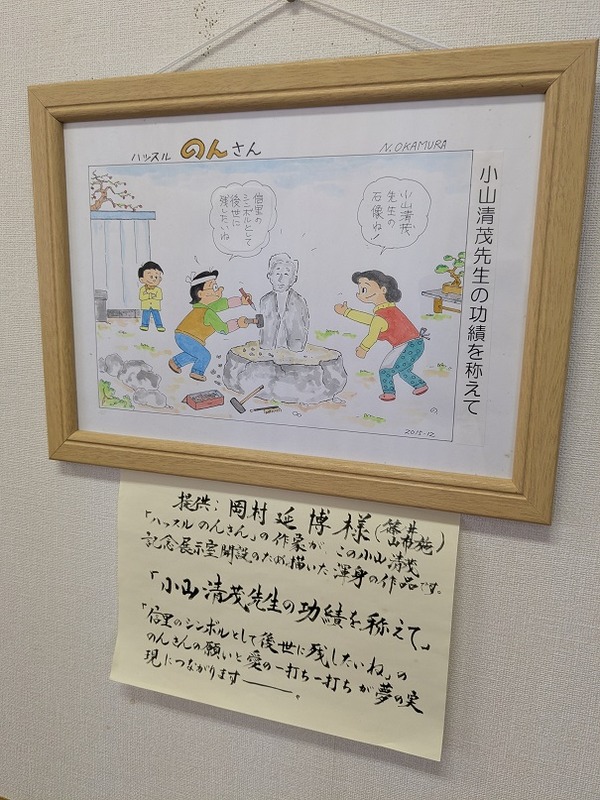 ハッスル のんさん
N.OKAMURA
小山清茂先生の功績を称えて
信里の
シンボルとして
後世に
残したいね
小山清茂
先生の
石像ね!
の
2015-12
提供:岡村延博様(篠ノ井
山布施)
「ハッスルのんさん」の作家が、この小山清茂
記念展示室開設のため描いた渾身の作品です。
「小山清茂先生の功績を称えて」
「信里のシンボルとして後世に残したいね」の
のんさんの願いと愛の一打ち一打ちが夢の実
現につながります――。